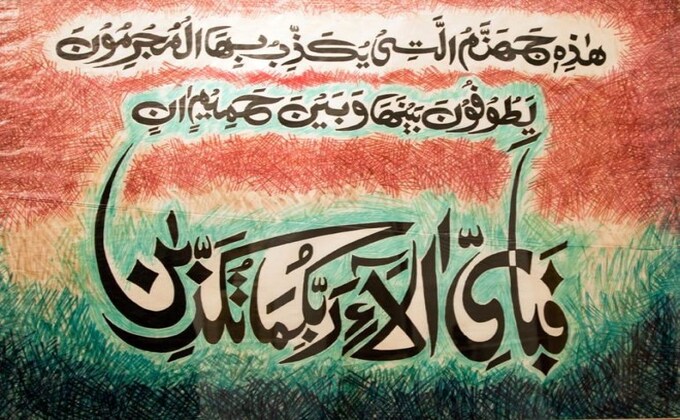 هٰذِهٖ جَهَنَّمُ الَّتِیْ یُكَذِّبُ بِهَا الْمُجْرِمُوْنَ
یَطُوْفُوْنَ بَیْنَهَا وَبَیْنَ حَمِیْمٍ اٰنٍ
فَبِاَیِّ اٰلَآءِ رَبِّكُمَا تُكَذِّبٰنِ